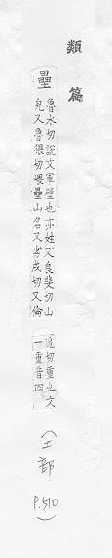 類篇
壘
魯水切說文軍壁也亦姓又良斐切山
皃又魯猥切㟪壘山名又劣戌切又倫
追切重也文
一重音四
(土部
P.510)